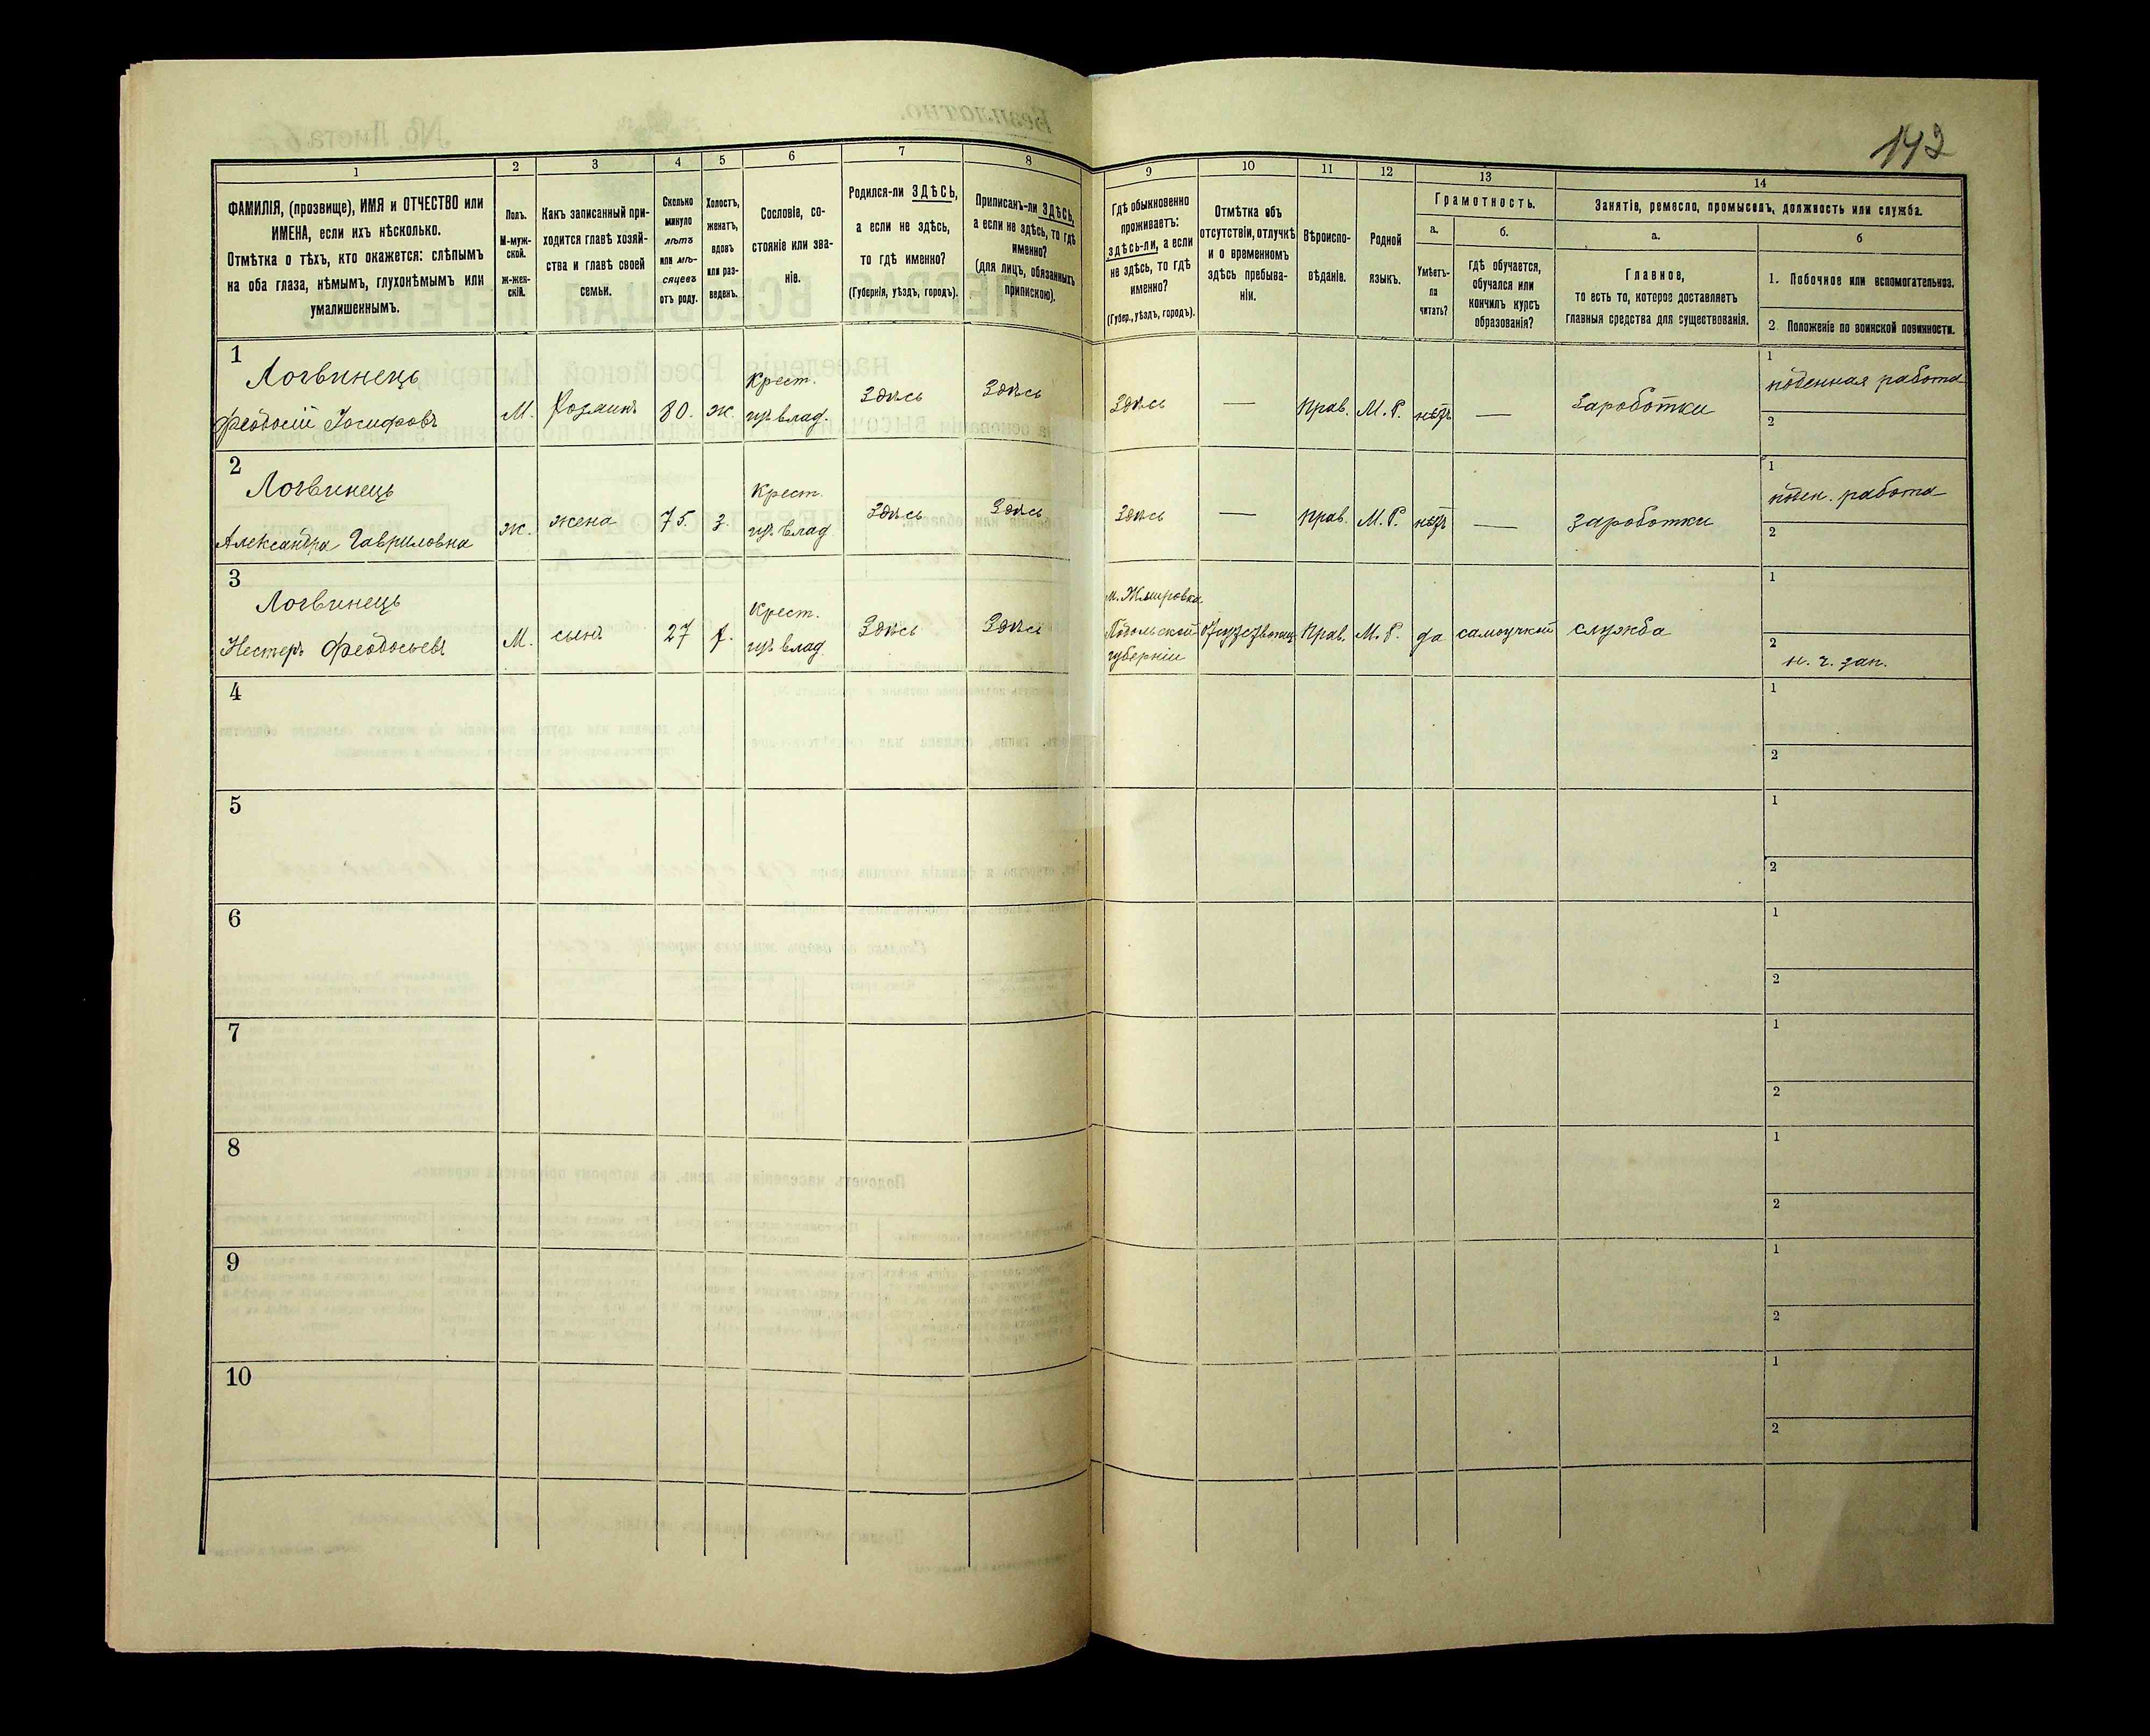 142
1
2
3
4
5
6
7
8
9
10
11
12
13
14
ФАМИЛІЯ, (прозвище), ИМЯ и ОТЧЕСТВО или
ИМЕНА, если ихъ нѣсколько.
Отмѣтка о тѣхъ, кто окажется: слѣпымъ
на оба глаза, нѣмымъ, глухонѣмымъ или
умалишеннымъ.
Полъ.
М-муж-
ской.
ж-жен-
скій.
Какъ записанный при-
ходится главѣ хозяй-
ства и главѣ своей
семьи.
Сколько
минуло
лѣтъ
или мѣ-
сяцевъ
отъ роду.
Холостъ,
женатъ,
вдовъ
или раз-
веденъ.
Сословіе, со-
стояніе или зва-
ніе.
Родился-ли ЗДѢСЬ,
а если не здѣсь,
то гдѣ именно?
(Губернія, уѣздъ, городъ).
Приписанъ-ли ЗДѢСЬ,
а если не здѣсь, то гдѣ
именно?
(для лицъ, обязанныхъ
припискою).
Гдѣ обыкновенно
проживаетъ:
здѣсь-ли, а если
не здѣсь, то гдѣ
именно?
(Губер., уѣздъ, городъ).
Отмѣтка объ
отсутствіи, отлучкѣ
и о временномъ
здѣсь пребыва-
ніи.
Вѣроиспо-
вѣданіе.
Родной
языкъ.
Грамотность.
а.
Умѣетъ-
ли
читать?
б.
гдѣ обучается,
обучался или
кончилъ курсъ
образованія?
Занятіе, ремесло, промыселъ, должность или служба.
а.
Главное,
то есть то, которое доставляетъ
главныя средства для существованія.
б
1. Побочное или вспомогательное.
2. Положеніе по воинской повинности.
1
Логвинець
Феодосій Іосифовъ
М.
Хозяинъ
80.
ж.
Крест.
изъ влад.
Здѣсь
Здѣсь
Здѣсь
—
Прав.
М. Р.
нѣтъ
—
Зароботки
1
поденная работа
2
2
Логвинець
Александра Гавриловна
ж.
жена
75.
з.
Крест.
изъ влад
Здѣсь
Здѣсь
Здѣсь
—
Прав.
М. Р.
нѣтъ
—
Зароботки
1
поден. работа
2
3
Логвинець
Нестеръ Феодосьевъ
М.
сынъ
27
х.
Крест.
изъ влад
Здѣсь
Здѣсь
Подольской
губерніи
Прав.
М. Р.
да
самоучкой
служба
1
2
4
1
2
5
1
2
6
1
2
7
1
2
8
1
2
9
1
2
10
1
2